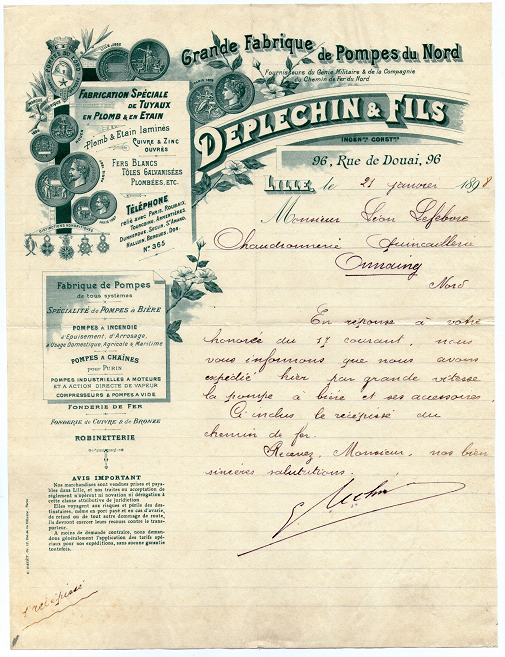 Grande Fabrique de Pompes du Nord
Fournisseurs du Génie Militaire & de la Compagnie
du Chemin de Fer du Nord
DEPLECHIN & FILS
INGENrs CONSTrs
96, Rue de Douai, 96
LILLE, le 21 janvier 1898
FABRICATION SPÉCIALE
DE TUYAUX
EN PLOMB & EN ETAIN
Plomb & Etain laminés
CUIVRE & ZINC
OUVRÉS
FERS BLANCS
TÔLES GALVANISÉES
PLOMBÉES, ETC.
TÉLÉPHONE
RELIÉ AVEC PARIS, ROUBAIX,
TOURCOING, ARMENTIÈRES,
DUNKERQUE, SECLIN, ST AMAND,
HALLUIN, BERGUES, DON.
No 365
DISTINCTIONS HONORIFIQUES
Monsieur Léon Lefebvre
Chaudronnerie Quincaillerie
Onnaing
Nord
En réponse à votre
honorée du 17 courant, nous
vous informons que nous avons
expédié hier par grande vitesse
la pompe à bière et ses accessoires.
Ci inclus le récépissé du
chemin de fer.
Recevez, Monsieur, nos bien
sincères salutations.
Fabrique de Pompes
de tous systèmes
SPÉCIALITÉ DE POMPES À BIÈRE
POMPES A INCENDIE
d'Epuisement, d'Arrosage,
à Usage Domestique, Agricole & Maritime
POMPES A CHAÎNES
pour PURIN
POMPES INDUSTRIELLES A MOTEURS
ET A ACTION DIRECTE DE VAPEUR
COMPRESSEURS & POMPES A VIDE
FONDERIE DE FER
FONDERIE DE CUIVRE & DE BRONZE
ROBINETTERIE
AVIS IMPORTANT
Nos marchandises sont vendues prises et paya-
bles dans Lille, et nos traites ou acceptation de
règlement n'opèrent ni novation ni dérogation à
cette clause attributive de juridiction
Elles voyagent aux risques et périls des des-
tinataires, même en port payé et en cas d'avarie,
de retard ou de tout autre dommage de route,
ils devront exercer leurs recours contre le trans-
porteur.
A moins de demande contraire, nous deman-
dons généralement l'application des tarifs spé-
ciaux pour nos expéditions, sans aucune garantie
toutefois.
1 récépissé